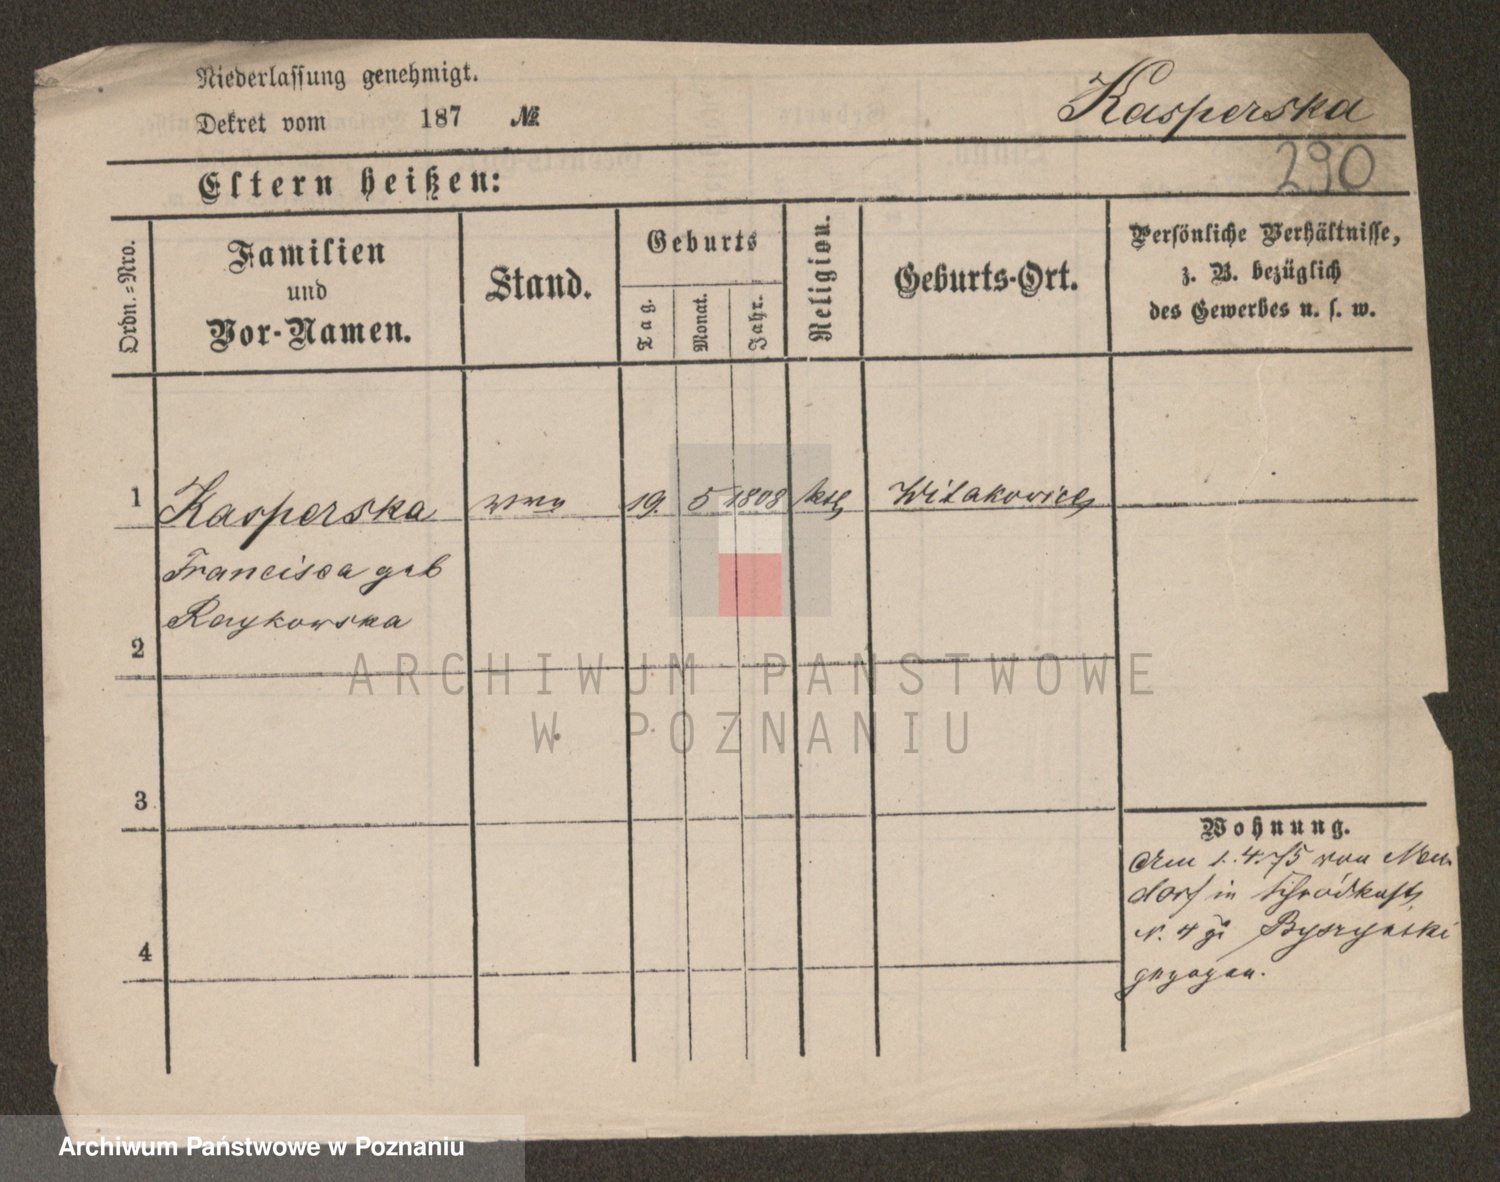 Niederlassung genehmigt.
Dekret vom 187 №
Kasperska
290
Eltern heißen:
Ordn.-Nro.
Familien
und
Vor-Namen.
Stand.
Geburts
Tag.
Monat.
Jahr.
Religion.
Geburts-Ort.
Persönliche Verhältnisse,
z. B. bezüglich
des Gewerbes u. s. w.
1 Kasperska 19. 5 1808 kth Witakowice
Francisca geb
Raykowska
2
3
4
Wohnung.
Am 1.4.75 von Neu-
dorf in
N. 4 zu Byszynski
gezogen.
ARCHIWUM PAŃSTWOWE
W POZNANIU
Archiwum Państwowe w Poznaniu